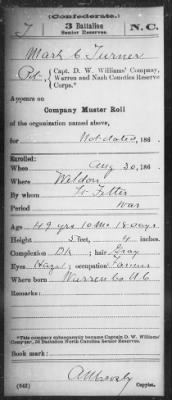 (Confederate.)
T 3 Battalion N.C.
Senior Reserves.
Mark C Turner
Pvt., Capt. D. W. Williams' Company,
Warren and Nash Counties Reserve
Corps.*
Appears on
Company Muster Roll
of the organization named above,
for Not dated, 186 .
Enrolled:
When Aug 30, 186 .
Where Weldon
By whom
Period War
Age 49 yrs 10 Mo 18 days
Height 5 feet, 4 inches.
Complexion Dk ; hair Gray
Eyes Hazel ; occupation Farmer
Where born Warren Co N.C
Remarks:
*This company subsequently became Captain D. W. Williams'
Company, 3d Battalion North Carolina Senior Reserves.
Book mark:
(642) Copyist.